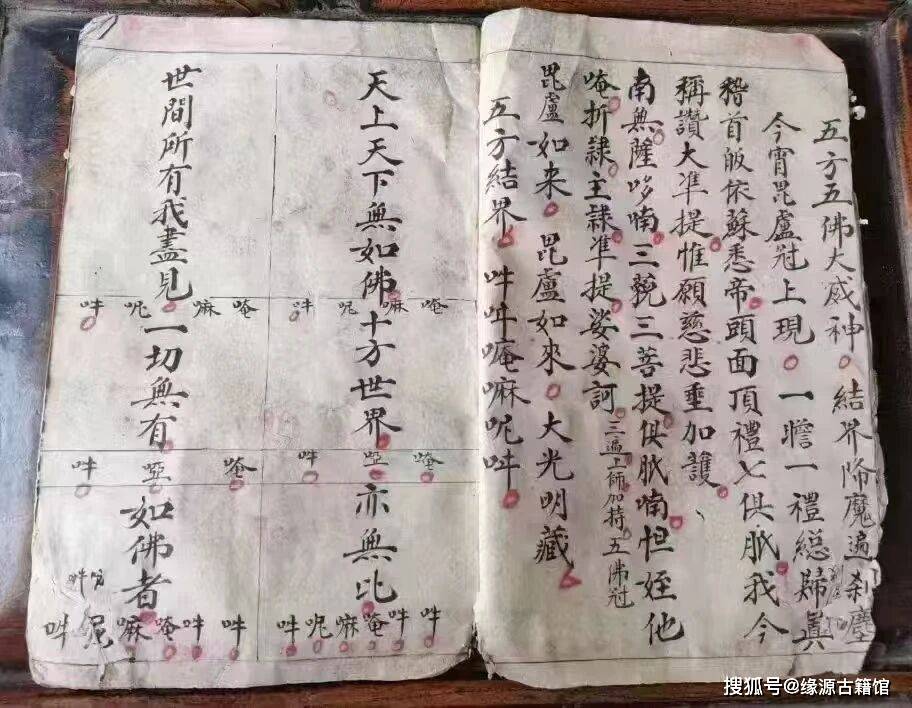 五方五佛大威神結界降魔遍刹塵
今宵毘盧冠上現一瞻一禮總歸真
稽首皈依蘇悉帝頭面頂禮七俱胝我今
稱讚大準提惟願慈悲垂加護
南無薩哆喃三藐三菩提俱胝喃怛姪他
唵折隸主隸準提娑婆訶三遍上師加持五佛冠
毘盧如來毘盧如來大光明藏
五方結界吽吽唵嘛呢吽
天上天下無如佛十方世界亦無比
唵嘛呢吽
唵啞吽
吽吽唵嘛呢吽
世間所有我盡見一切無有如佛者
唵嘛呢吽
唵啞吽
吽吽唵嘛呢吽
搜狐号@缘源古籍馆